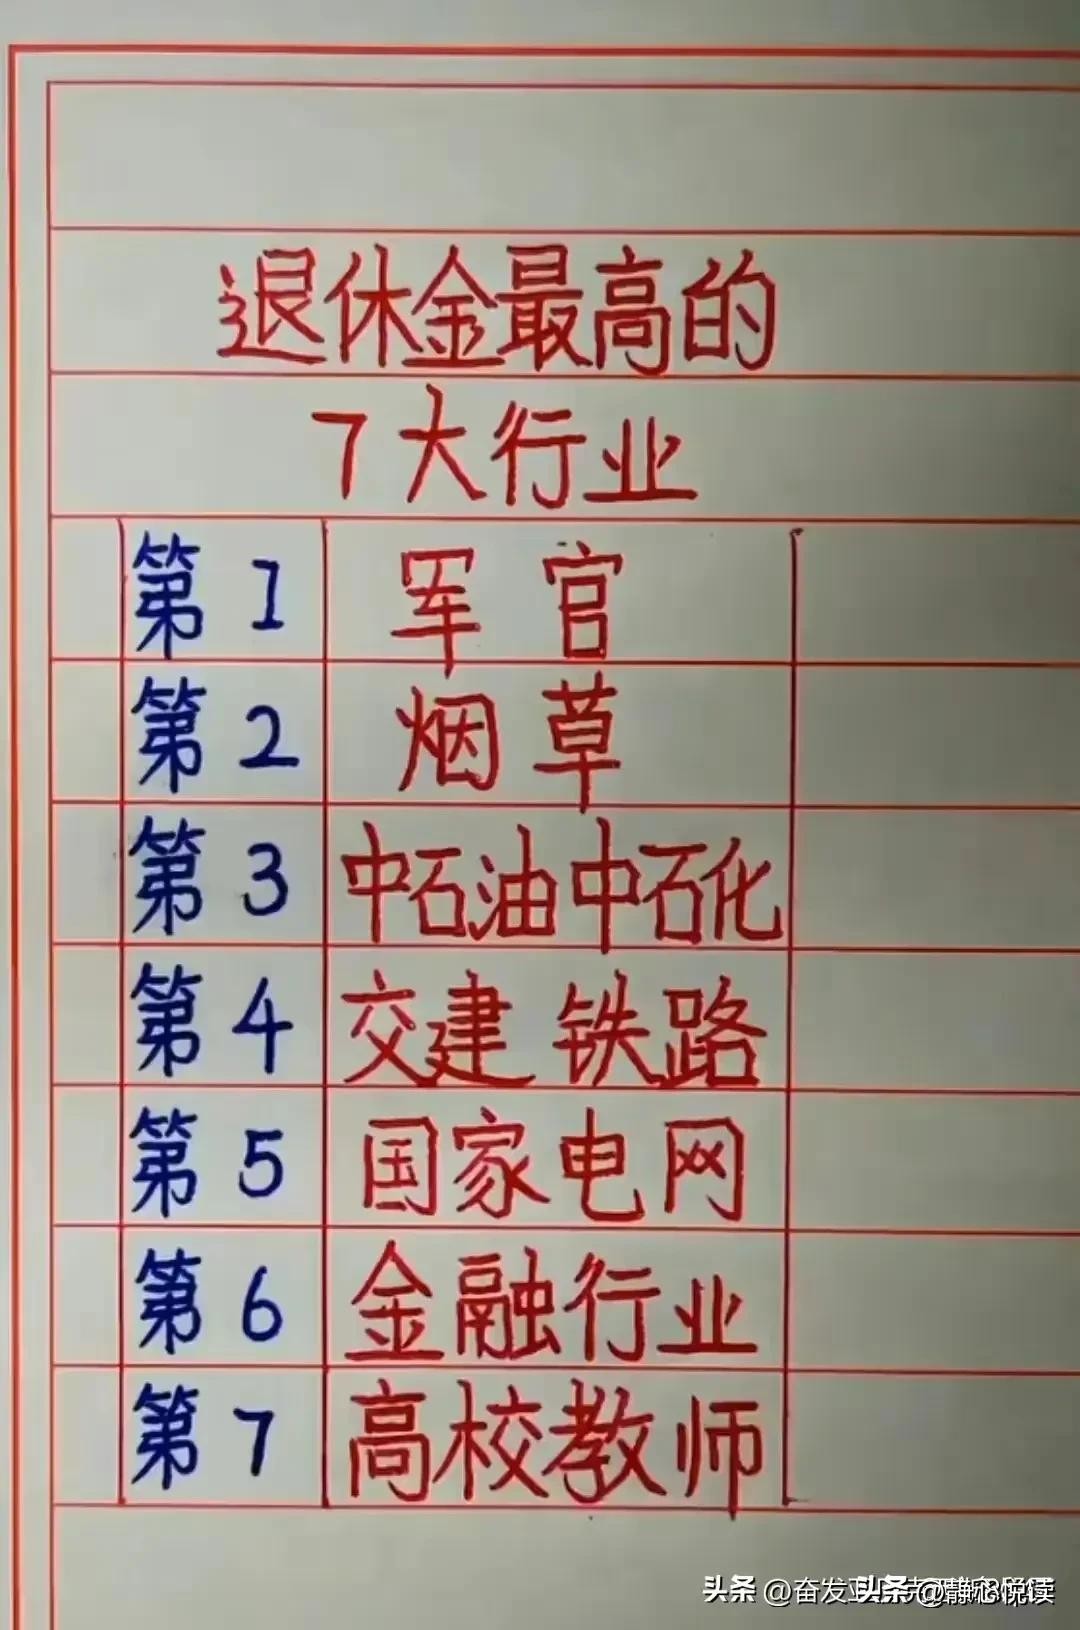 退休金最高的
7大行业
第1 军官
第2 烟草
第3 中石油中石化
第4 交建 铁路
第5 国家电网
第6 金融行业
第7 高校教师
头条 @静心悦读